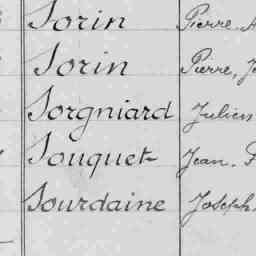 Sorin Pierre
Sorin Pierre,
Sorgniard Julien
Souquet Jean
Sourdaine Joseph